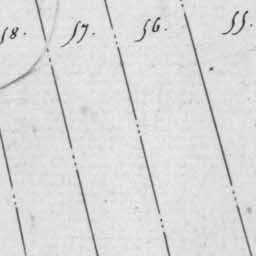 58. 57. 56. 55.